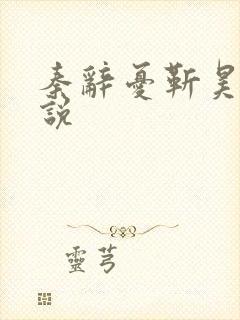 秦辭憂靳昊
說
靈芎